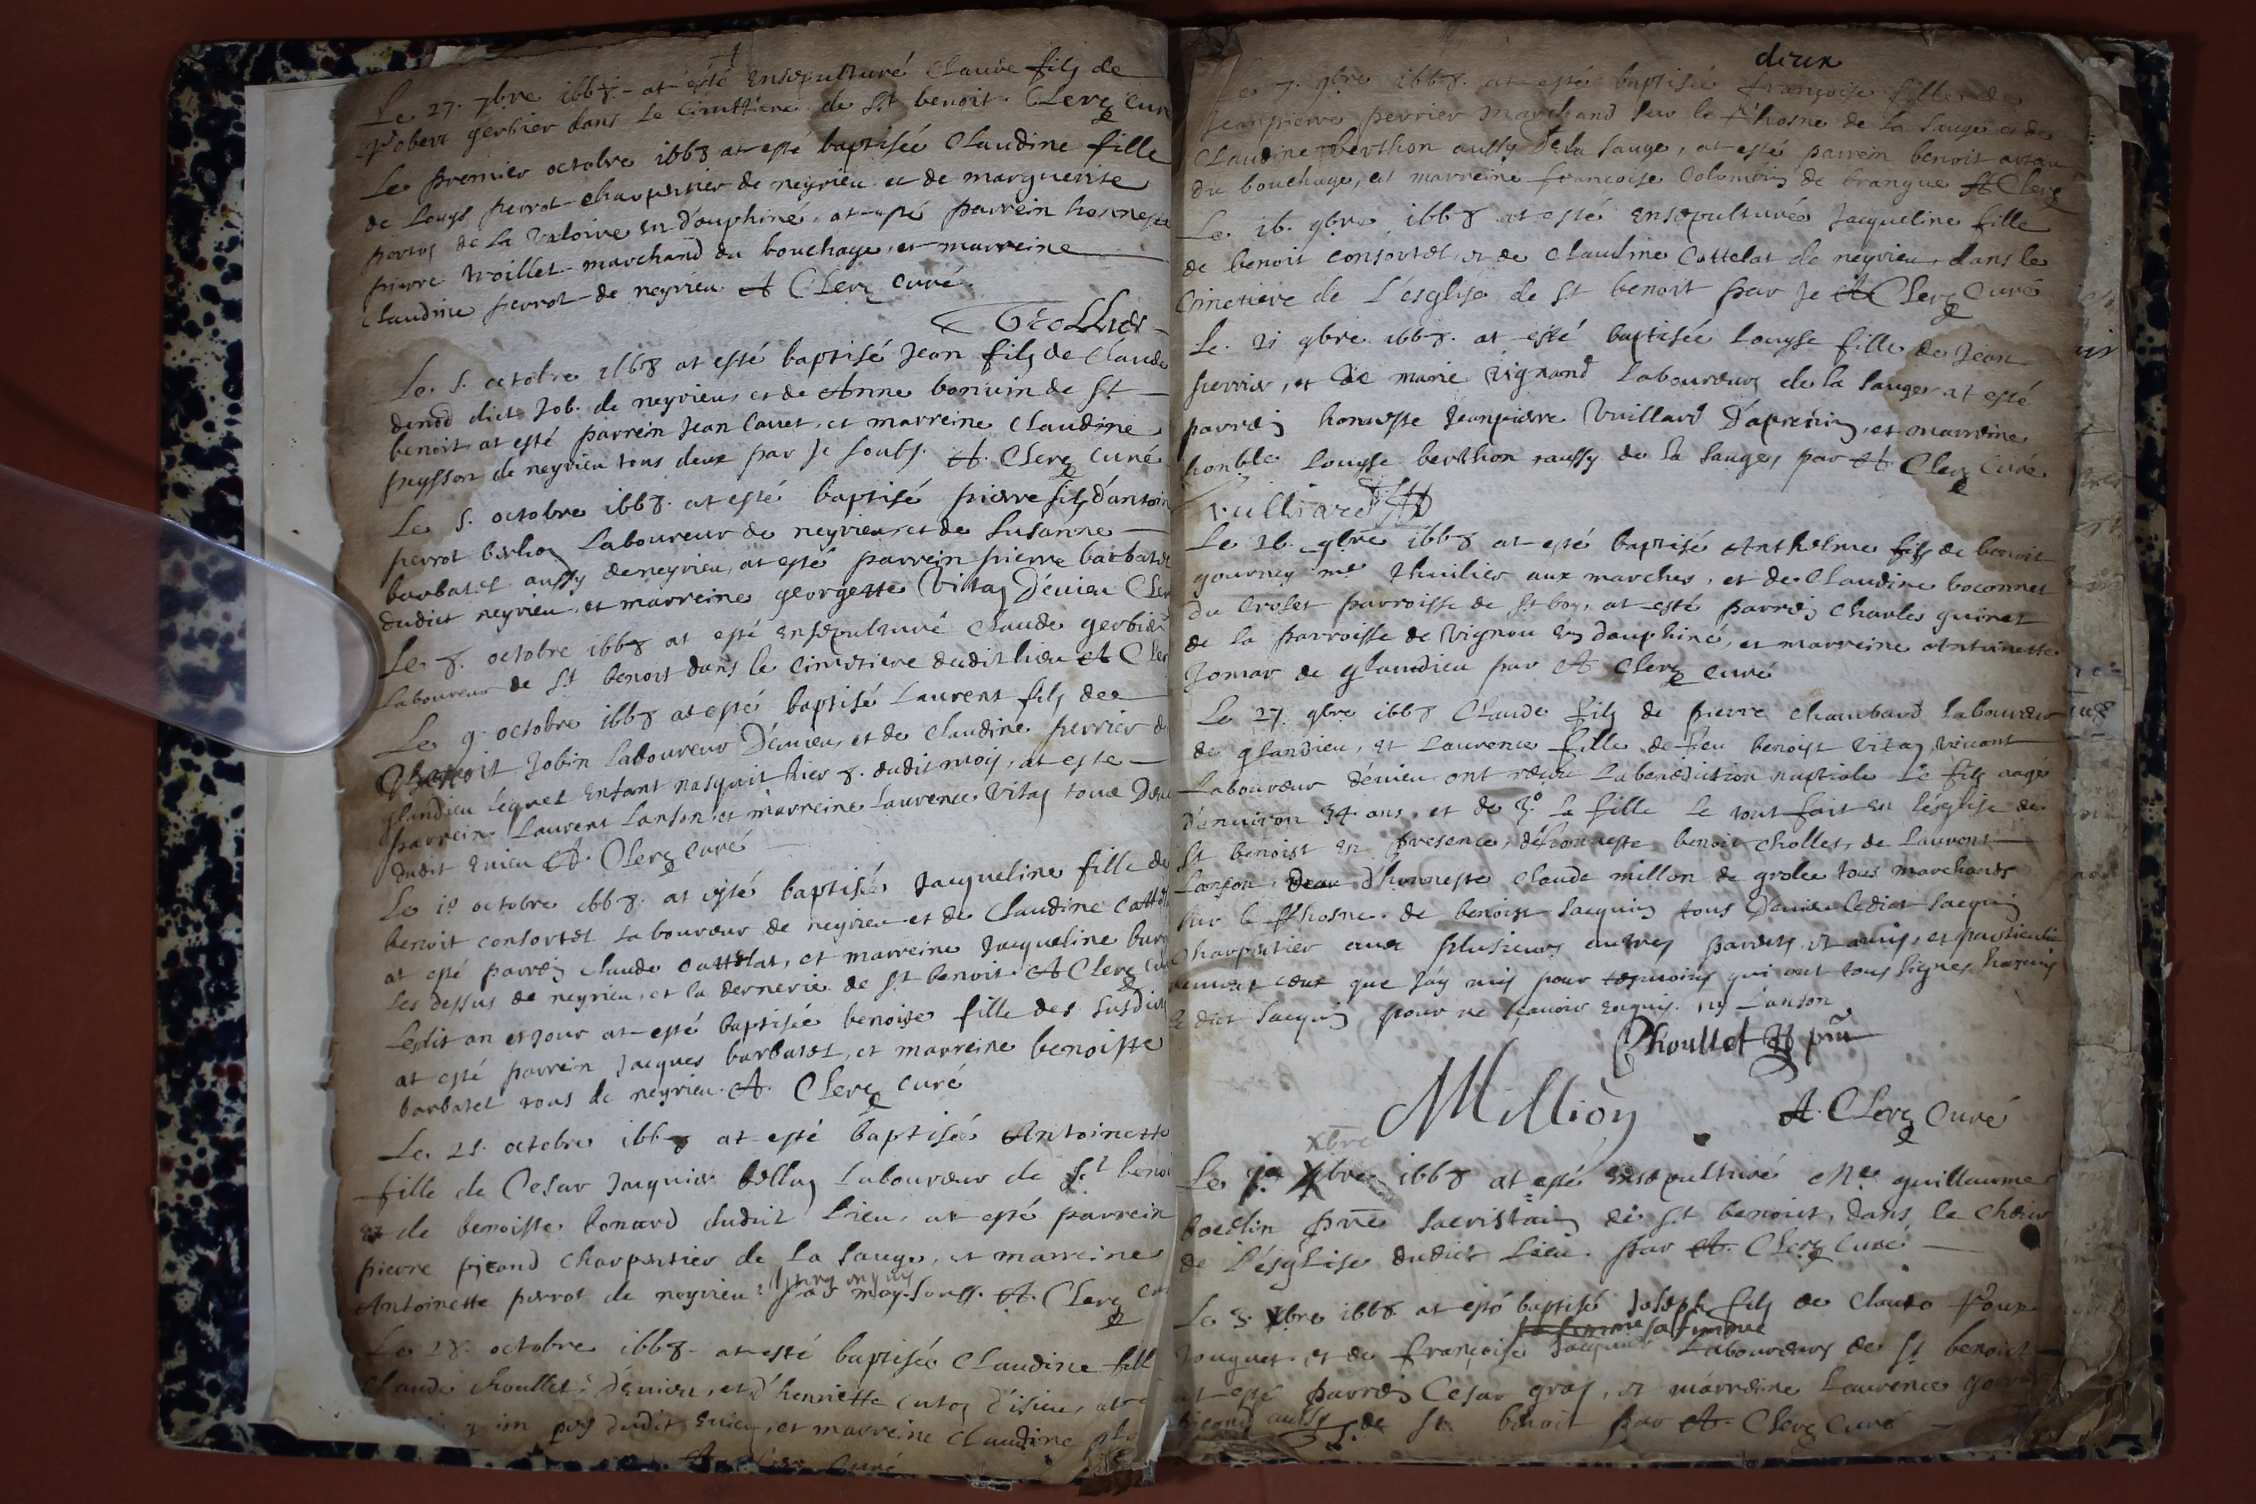 Le 27. 7bre 1668. at esté ensepulturé Claude fils de
Robert gerbier dans le cimittiere de St benoit. Clerc cur
Le premier octobre 1668 at esté baptisée Claudine fille
de Louys perrot charpentier de neyrieu et de marguerite
de la Valoire en d'auphiné, at esté parrein honneste
pierre troillet marchand du bouchage, et marreine
Claudine perrot de neyrieu A Clerc curé.
Le 5. octobre 1668 at esté baptisé Jean fils de Claude
dict Job. de neyrieu, et de Anne bonuin de St
benoit, at esté parrein Jean Cauet, et marreine Claudine
puysson de neyrieu tous deux par je soubs. A. Clerc curé
Le 5. octobre 1668. at esté baptisé pierre fils d'antoin
perrot berlion Laboureur de neyrieu, et de Susanne
barbatet aussy de neyrieu, at esté parrein pierre barbatet
dudict neyrieu, et marreine georgette Vittoz D'euieu Cler
Le 8. octobre 1668 at esté ensepulturé Claude gerbier
Laboureur de St benoit dans le cimetiere dudit lieu A Cler
Le 9. octobre 1668 at esté baptisé Laurent fils de
benoit Jobin Laboureur D'euieu, et de Claudine perrier de
glandieu lequel enfant nasquit hier 8. dudit mois, at esté
parrein Laurent Lanson et marreine Laurence Vitoz tous Deux
dudit euieu A. Clerc curé
Le 10 octobre 1668. at esté baptisée Jacqueline fille de
benoit consortet Laboureur de neyrieu et de Claudine Cattel
at esté parrein Claude Cattelat, et marreine Jacqueline
les dessus de neyrieu, et la derniere de St benoit. A Clerc cur
Ledit an et jour at esté baptisée benoiste fille des susdict
at esté parrein Jacques barbatet, et marreine benoiste
barbatet tous de neyrieu. A. Clerc curé
Le 25. octobre 1668 at esté baptisée Antoinette
fille de Cesar Jacquier belluz Laboureur de St benoi
et de benoiste bonard dudict lieu, at esté parrein
pierre picand charpentier de la sauge, et marreine
Antoinette perrot de neyrieu par moy souss. A. Clerc cur
Le 28. octobre 1668. at esté baptisée Claudine fill
Claude choullet D'euieu, et d'henriette cutoz d'isieu, at
dudit euieu, et marreine Claudine
A Clerc curé
deux
Le 7. 9bre 1668. at esté baptisée françoise fille de
Jeanpierre perrier marchand sur le Rhosne de la sauge et de
Claudine berthon aussy de la sauge, at esté parrein benoit
du bouchage, et marreine françoise Colombin de brangue A Clerc
Le 16. 9bre 1668 at esté ensepulturée Jacqueline fille
de benoit consortet, et de Claudine Cattelat de neyrieu, dans le
Cimetiere de L'esglise de St benoit par je A Clerc curé
Le 21 9bre 1668. at esté baptisée Louyse fille de Jean
perrier, et de marie Vignand Laboureurs de la sauge at esté
parrein honneste Jeanpierre Vuillard D'apremin, et marreine
honble Louyse berthon aussy de la sauge, par A. Clerc curé
Vuilliard
Le 26. 9bre 1668 at esté baptisé Anthelme fils de benoit
gourney me Thuilier aux marches, et de Claudine boconnet
du Croset parroisse de St boys, at esté parrein Charles guinet
de la parroisse de Vignou en dauphiné, et marreine Antoinette
Jomar de glandieu par A Clerc curé
Le 27. 9bre 1668 Claude fils de pierre chambard Laboureur
de glandieu, et Laurence fille de feu benoist Vitoz viuant
Laboureur d'euieu ont receu La benediction nuptiale Le fils aagé
d'enuiron 34 ans, et de 30 La fille Le tout fait en l'esglise de
St benoist en presence, d'honneste benoit chollet, de Laurent
Lanson, d'honneste Claude millon de grolee tous marchands
sur le Rhosne. de benoist Jacquin tous D'euieu ledict Jacquin
charpentier auec plusieurs autres parens et amis, et particulie
ceux que j'ay mis pour tesmoins qui ont tous signes hormis
le dict Jacquin pour ne sçauoir enquis. Lanson
Choullet
Million
A. Clerc curé
xbre
Le xbre 1668 at esté ensepulturé Me guillaume
boellin pre sacristain de St benoit, dans le choeur
de l'ésglise dudict lieu. par A. Clerc curé
Le 8 xbre 1668 at esté baptisé Joseph fils de Claude Roux
sa femme
Jouquet, et de françoise Jacquier Laboureurs de St benoit
at esté parrein Cesar gros, et marreine Laurence
aussy de St benoit par A. Clerc curé